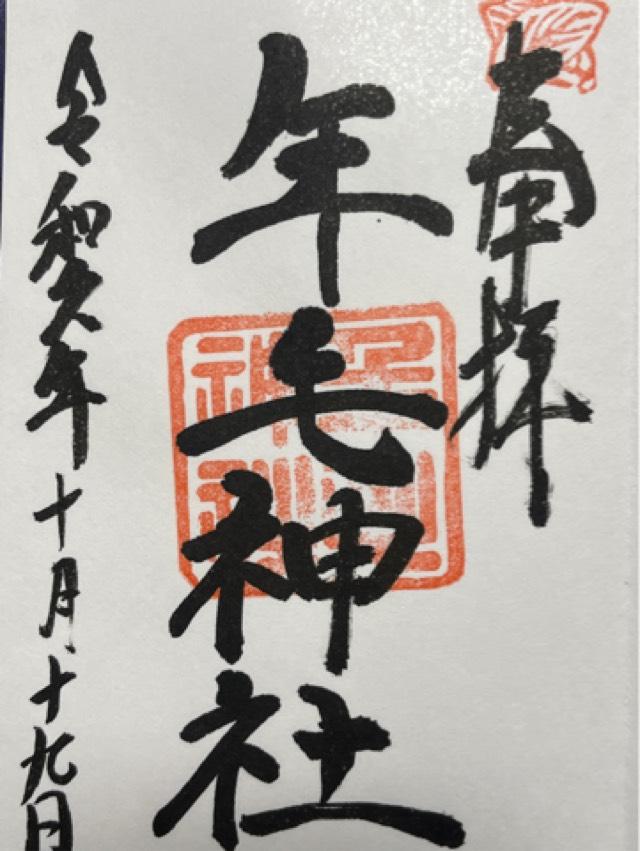 奉拝
年毛神社
令和六年十月十九日